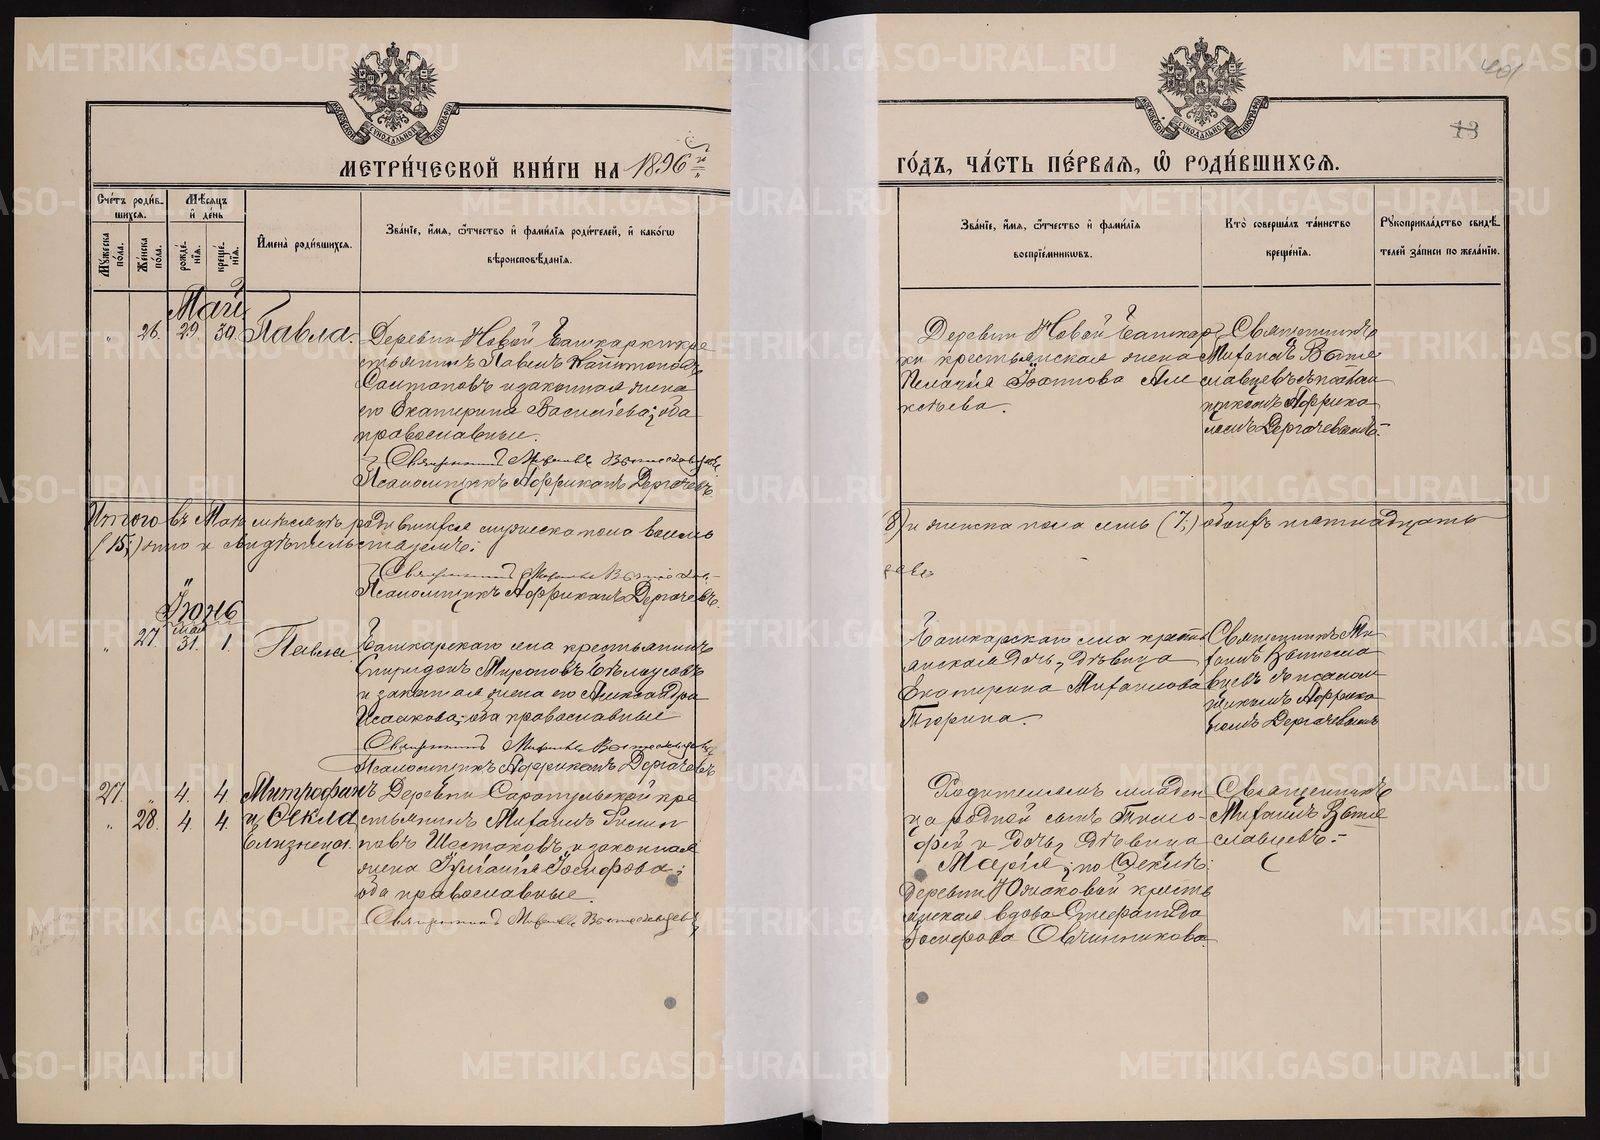 401
13
МЕТРИ́ЧЕСКОЙ КНИ́ГИ НА 1896 й
ГО́ДЪ, ЧА́СТЬ ПЕ́РВАѦ, Ѡ҆ РОДИ́ВШИХСѦ.
Сче́тъ роди́вшихсѧ.
Мѣ́сѧцъ и҆ де́нь
Мꙋ́жеска по́ла.
Же́нска по́ла.
рожде́нїѧ.
креще́нїѧ.
И҆мена̀ роди́вшихсѧ.
Зва́нїе, и҆́мѧ, ѻ҆́тчество и҆ фами́лїѧ роди́телей, и҆ како́гѡ
вѣроисповѣ́данїѧ.
Зва́нїе, и҆́мѧ, ѻ҆́тчество и҆ фами́лїѧ
воспрїе́мникѡвъ.
Кто̀ соверша́лъ та́инство
креще́нїѧ.
Рꙋкоприкла́дство свидѣ́телей за́писи по жела́нїю.
Май
" 26. 29. 30. Павла.
Деревни Новой Башкарки кре
стьянинъ Павелъ Капитоновъ
Солтановъ и законная жена
его Екатерина Васильева; оба
православные.
Священникъ Михаилъ Вотеславцевъ
Псаломщикъ Африканъ Дергачевъ.
Деревни Новой Башкар
ки крестьянская жена
Пелагія Іоаннова Але
ксѣева.
Священникъ
Михаилъ Воте
славцевъ съ псалом
щикомъ Африка
номъ Дергачевымъ.
Итого въ Маѣ мѣсяцѣ родившихся мужеска пола восемь
(8) и женска пола семь (7;) обоихъ пятнадцать
(15;) что и свидѣтельствуемъ:
Священникъ Михаилъ Вотеслав-
цевъ
Псаломщикъ Африканъ Дергачевъ.
Іюнь
" 27. май 31. 1. Павла
Башкарскаго села крестьянинъ
Спиридонъ Мироновъ Бѣлоусовъ
и законная жена его Александра
Исаакова; оба православные
Священникъ Михаилъ Вотеславцевъ
Псаломщикъ Африканъ Дергачевъ
Башкарскаго села кресть
янская дочь, дѣвица
Екатерина Михаилова
Тюрина.
Священникъ Ми
хаилъ Вотесла
вцевъ съ псалом
щикомъ Африка
номъ Дергачевымъ
27. " 4. 4. Митрофанъ
" 28. 4. 4. и Ѳекла
близнецы.
Деревни Сарапульской кре
стьянинъ Михаилъ Филип
повъ Шестаковъ и законная
жена Іуліанія Іосифова;
оба православные.
Священникъ Михаилъ Вотеславцевъ
Родителямъ младен
ца родной сынъ Тимо-
фей и дочь, дѣвица
Марія; по Ѳеклѣ:
Деревни Южаковой кресть
янская вдова
Іосифова Овчинникова.
Священникъ
Михаилъ Воте
славцевъ.
METRIKI.GASO-URAL.RU